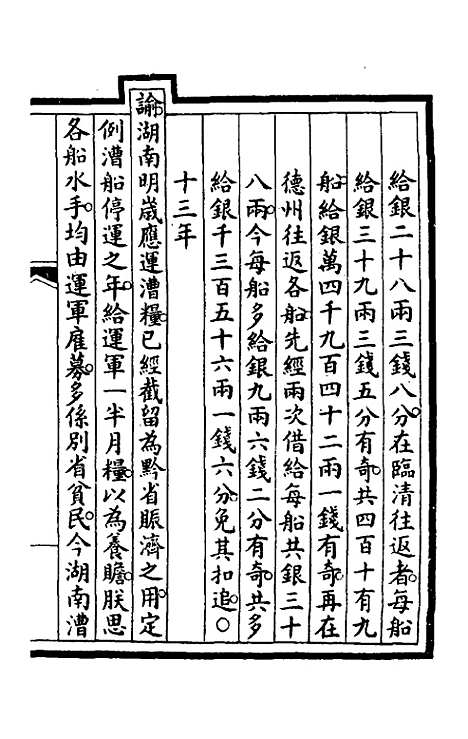 給銀二十八兩三錢八分。在臨清往返者。每船
給銀三十九兩三錢五分有奇。共四百十有九
船。給銀萬四千九百四十二兩一錢有奇。再在
德州往返各船。先經兩次借給每船共銀三十
八兩。今每船多給銀九兩六錢二分有奇。共多
給銀千三百五十六兩一錢六分。免其扣追。○
十三年
諭。湖南明歲應運漕糧。已經截留為黔省賑濟之用。定
例漕船停運之年。給運軍一半月糧。以為養贍。朕思
各船水手。均由運軍雇募。多係別省貧民。今湖南漕